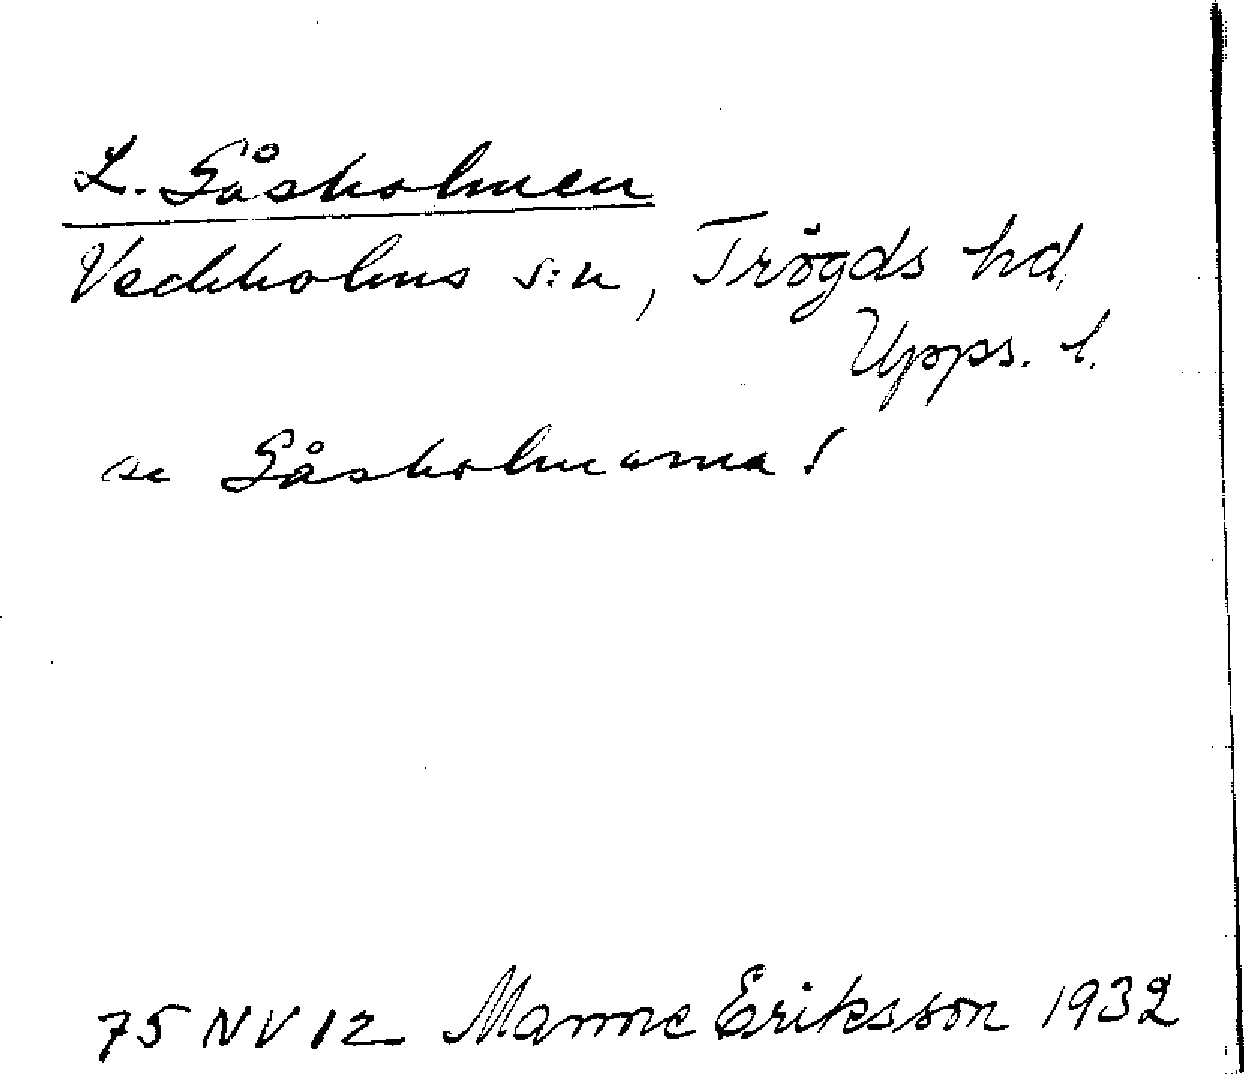 L. Gåsholmen
Veckholms s:n, Trögds hd,
Upps. l.
se Gåsholmarna!
75 NV 12 Manne Eriksson 1932